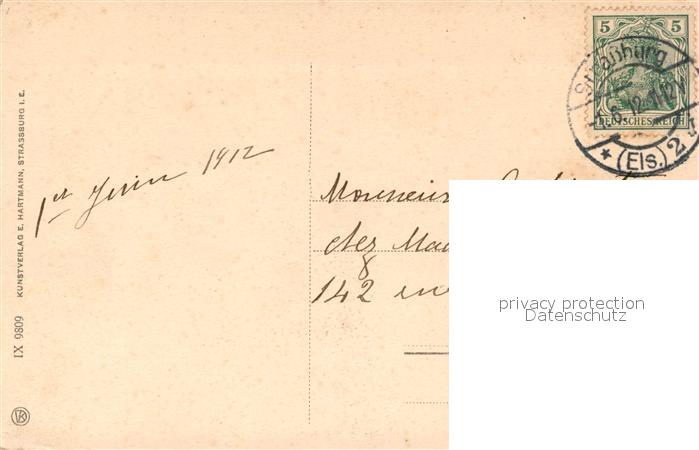 KUNSTVERLAG E. HARTMANN, STRASSBURG I. E.
IX 9809
1er Juin 1912
5 5
DEUTSCHES REICH
Straßburg
1.6.12.11-12V
* (Els.) 2
Monsieur
chez Mad
8
142
privacy protection
Datenschutz